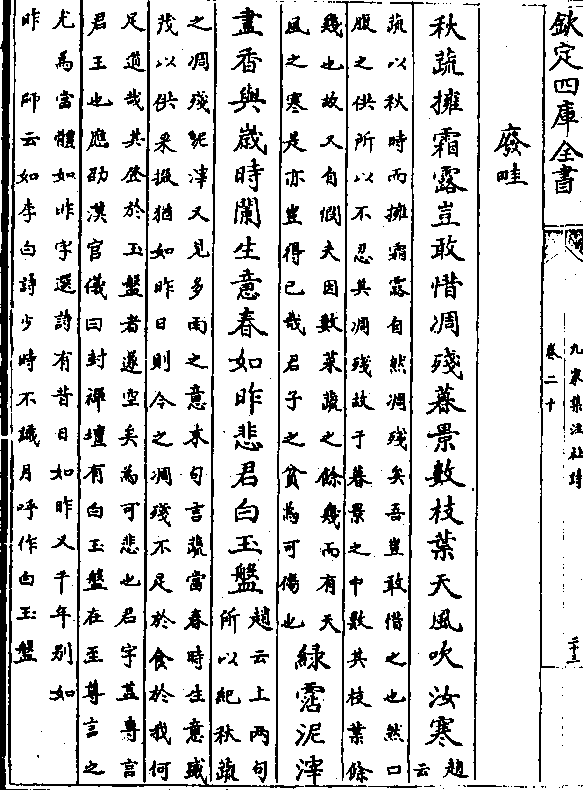 欽定四庫全書
九家集注杜詩
卷二十
廢畦
秋蔬擁霜露豈敢惜凋殘暮景數枝葉天風吹汝寒
趙
云
蔬以秋時而擁霜露自然凋殘矣吾豈敢惜之也然口
腹之供所以不忍其凋殘故于暮景之中數其枝葉餘
幾也故又自憫夫因數菜蔬之餘幾而有天
風之寒是亦豈得已哉君子之貧為可傷也
綠霑泥滓
盡香與歲時闌生意春如昨悲君白玉盤
趙云上兩句
所以紀秋蔬
之凋殘泥滓又見多雨之意末句言蔬當春時生意盛
茂以供采掇猶如昨日則今之凋殘不足於食於我何
足道哉其登於玉盤者遂空矣為可悲也君字蓋專言
君王也應劭漢官儀曰封禪壇有白玉盤在至尊言之
尤為當體如昨字選詩有昔日如昨又千年別如
昨 師云如李白詩少時不識月呼作白玉盤